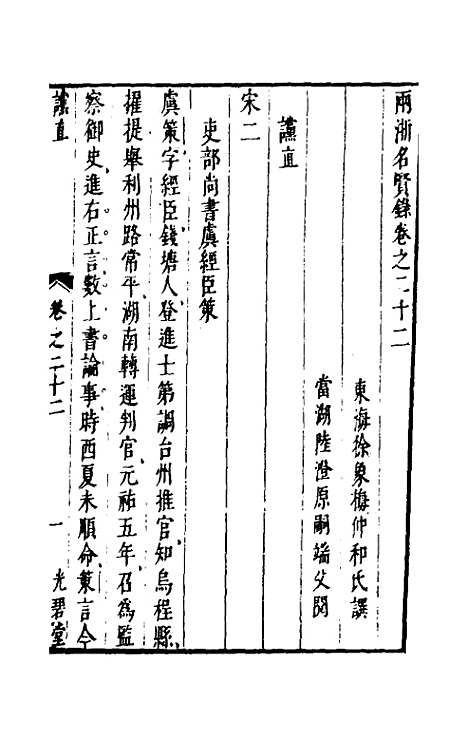 兩浙名賢錄卷之二十二
東海徐象梅仲和氏譔
當湖陸澄原嗣端父閱
讜直
宋二
吏部尚書虞經臣策
虞策字經臣錢塘人登進士第調台州推官知烏程縣
擢提舉利州路常平湖南轉運判官元祐五年召爲監
察御史進右正言數上書論事時西夏未順命策言今
讜直
卷之二十二
一
光碧堂